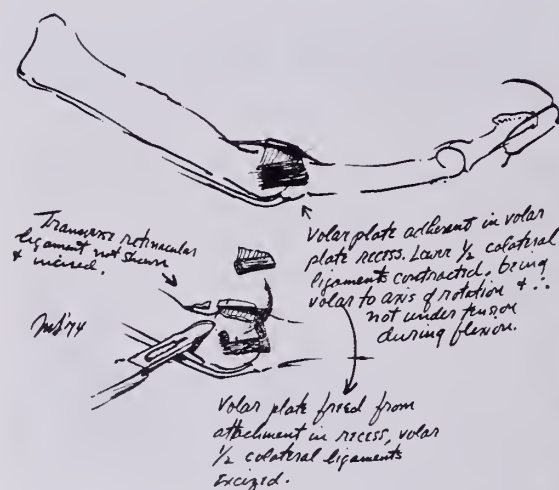 Transverse retinacular
ligament not shown
& incised.
Volar plate adherent in volar
plate recess. Lower 1/2 colateral
ligaments contracted, being
volar to axis of rotation & ∴
not under tension
during flexion.
Volar plate freed from
attachment in recess, volar
1/2 colateral ligaments
excized.